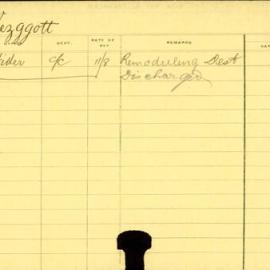 ezggott
DEPT. RATE OF PAY REMARKS
itter c/c 11/8 Remoduling Dest
Discharged